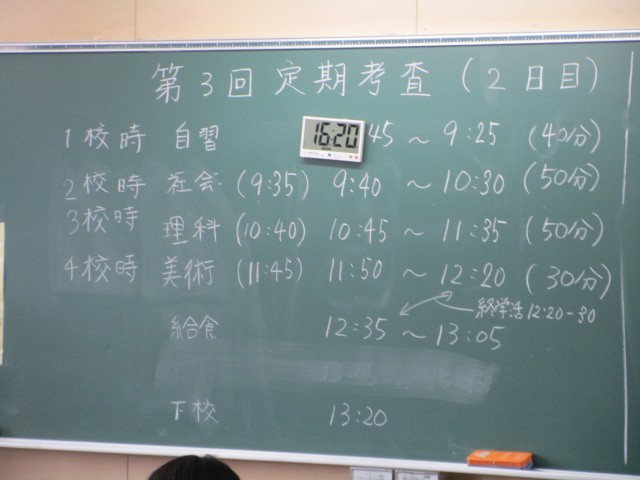 第3回定期考査(2日目)
16:20
1校時 自習 45 ~ 9:25 (40分)
2校時 社会 (9:35) 9:40 ~ 10:30 (50分)
3校時 理科 (10:40) 10:45 ~ 11:35 (50分)
4校時 美術 (11:45) 11:50 ~ 12:20 (30分)
終学活12:20-30
給食 12:35 ~ 13:05
下校 13:20